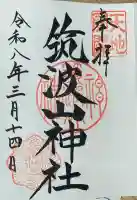 奉拝
筑波山神社
令和八年三月十四日